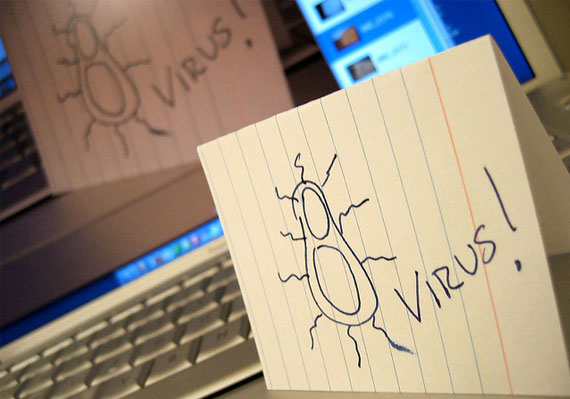 VIRUS!
VIRUS!